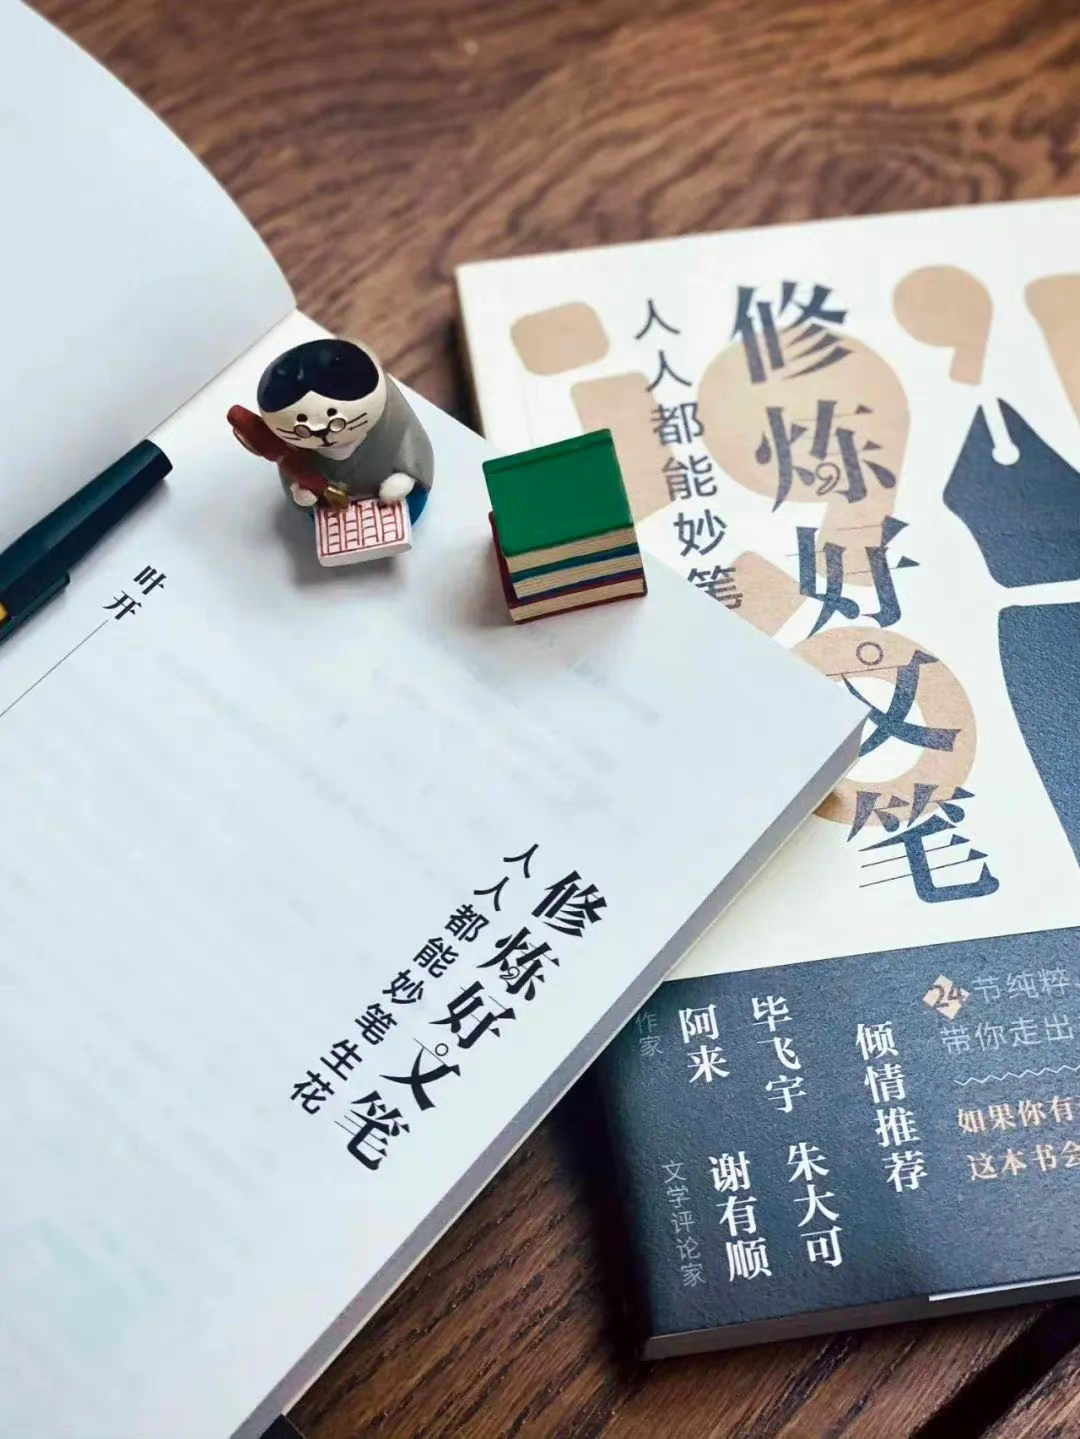 叶开
修炼好文笔
人人都能妙笔生花
修炼好文笔
人人都能妙笔
24节纯粹
带你走出
如果你有
这本书会
倾情推荐
毕飞宇
朱大可
阿来
谢有顺
作家
文学评论家